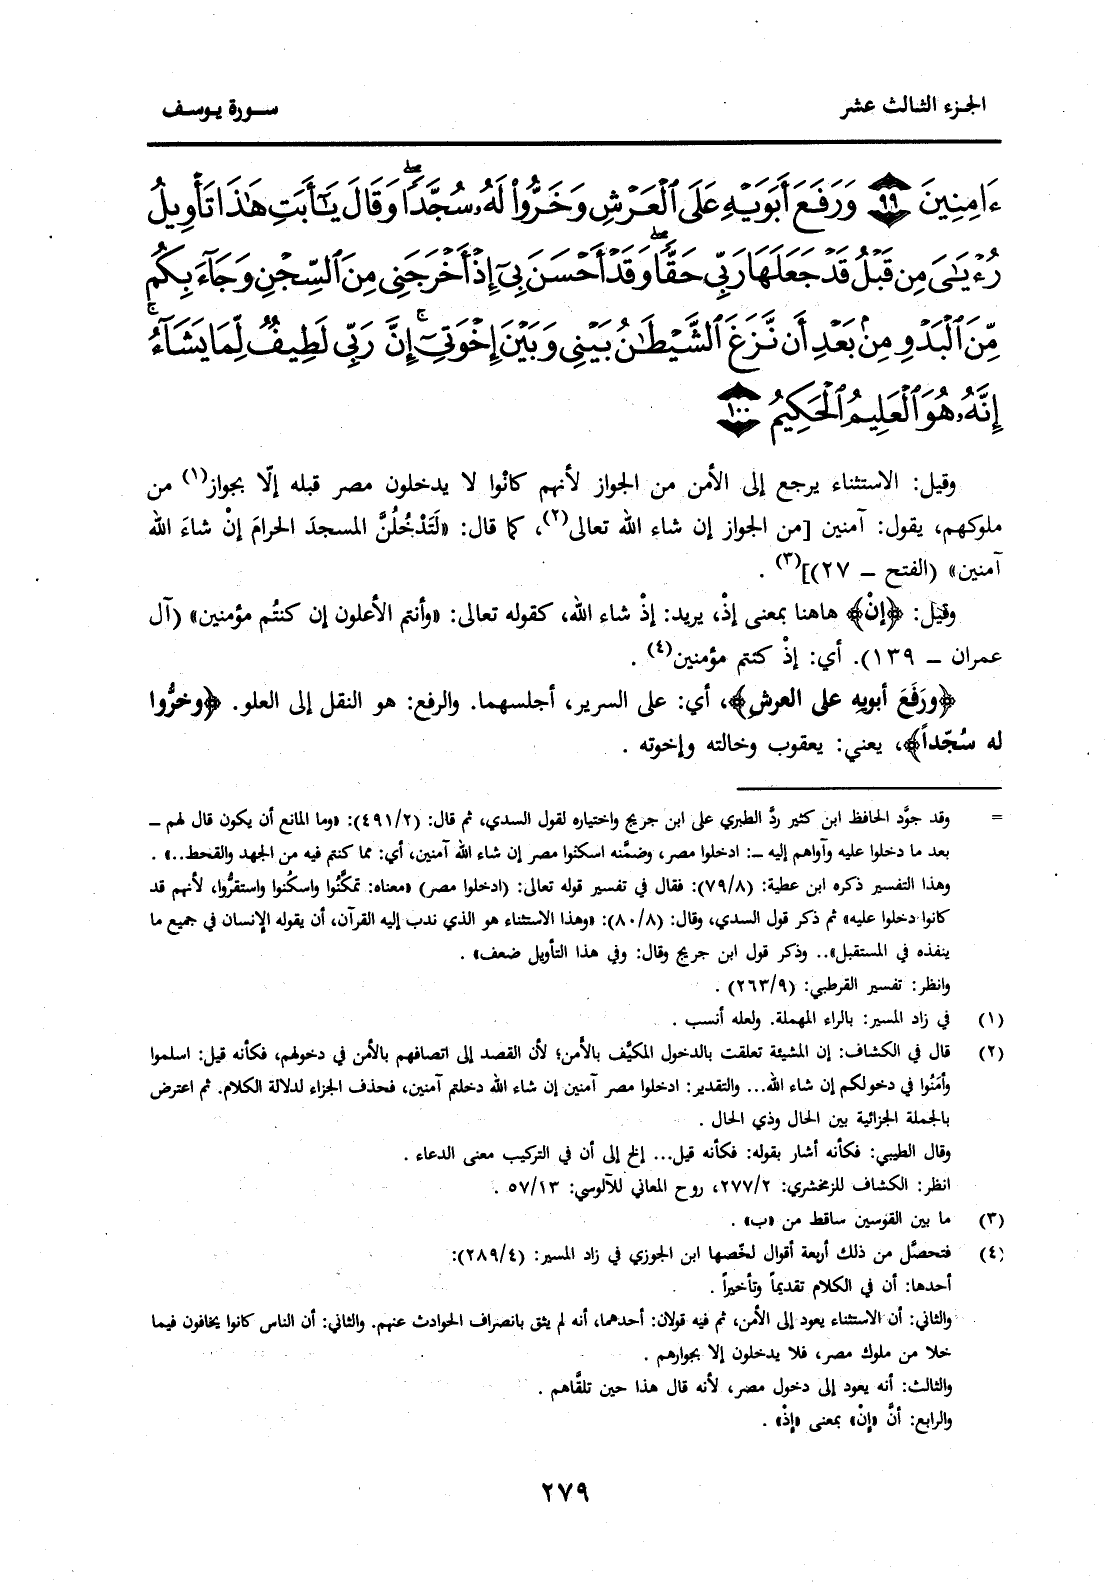 الجزء الثالث عشر
سورة يوسف
ءَامِنِينَ ٩٩ وَرَفَعَ أَبَوَيْهِ عَلَى ٱلْعَرْشِ وَخَرُّوا۟ لَهُۥ سُجَّدًا ۖ وَقَالَ يَٰٓأَبَتِ هَٰذَا تَأْوِيلُ
رُءْيَٰىَ مِن قَبْلُ قَدْ جَعَلَهَا رَبِّى حَقًّا ۖ وَقَدْ أَحْسَنَ بِىٓ إِذْ أَخْرَجَنِى مِنَ ٱلسِّجْنِ وَجَآءَ بِكُم
مِّنَ ٱلْبَدْوِ مِنۢ بَعْدِ أَن نَّزَغَ ٱلشَّيْطَٰنُ بَيْنِى وَبَيْنَ إِخْوَتِىٓ ۚ إِنَّ رَبِّى لَطِيفٌ لِّمَا يَشَآءُ ۚ
إِنَّهُۥ هُوَ ٱلْعَلِيمُ ٱلْحَكِيمُ ١٠٠
وقيل: الاستثناء يرجع إلى الأمن من الجواز لأنهم كانُوا لا يدخلون مصر قبله إلّا بجواز(١) من
ملوكهم، يقول: آمنين [من الجواز إن شاء الله تعالى(٢)، كما قال: «لَتَدْخُلُنَّ المسجدَ الحرامَ إنْ شاءَ الله
آمنين» (الفتح ــ ٢٧)](٣) .
وقيل: ﴿إنْ﴾ هاهنا بمعنى إذْ، يريد: إذْ شاء الله، كقوله تعالى: «وأنتم الأعلون إن كنتُم مؤمنين» (آل
عمران ــ ١٣٩). أي: إذْ كنتم مؤمنين(٤) .
﴿ورَفَعَ أبويهِ على العرشِ﴾، أي: على السرير، أجلسهما. والرفع: هو النقل إلى العلو. ﴿وخرُّوا
له سُجّداً﴾، يعني: يعقوب وخالته وإخوته .
= وقد جوَّد الحافظ ابن كثير ردَّ الطبري على ابن جريج واختياره لقول السدي، ثم قال: (٤٩١/٢): «وما المانع أن يكون قال لهم ــ
بعد ما دخلوا عليه وآواهم إليه ــ: ادخلوا مصر، وضمَّنه اسكنُوا مصر إن شاء الله آمنين، أي: مما كنتم فيه من الجهد والقحط..» .
وهذا التفسير ذكره ابن عطية: (٧٩/٨): فقال في تفسير قوله تعالى: (ادخلوا مصر) «معناه: تمكَّنُوا واسكُنوا واستقرُّوا، لأنهم قد
كانوا دخلوا عليه» ثم ذكر قول السدي، وقال: (٨٠/٨): «وهذا الاستثناء هو الذي ندب إليه القرآن، أن يقوله الإنسان في جميع ما
ينفذه في المستقبل».. وذكر قول ابن جريج وقال: وفي هذا التأويل ضعف» .
وانظر: تفسير القرطبي: (٢٦٣/٩) .
(١) في زاد المسير: بالراء المهملة. ولعله أنسب .
(٢) قال في الكشاف: إن المشيئة تعلقت بالدخول المكيَّف بالأمن؛ لأن القصد إلى اتصافهم بالأمن في دخولهم، فكأنه قيل: اسلموا
وأمَنُوا في دخولكم إن شاء الله... والتقدير: ادخلوا مصر آمنين إن شاء الله دخلتم آمنين، فحذف الجزاء لدلالة الكلام. ثم اعترض
بالجملة الجزائية بين الحال وذي الحال .
وقال الطيبي: فكأنه أشار بقوله: فكأنه قيل... إلخ إلى أن في التركيب معنى الدعاء .
انظر: الكشاف للزمخشري: ٢٧٧/٢، روح المعاني للآلوسي: ٥٧/١٣ .
(٣) ما بين القوسين ساقط من «ب» .
(٤) فتحصَّل من ذلك أربعة أقوال لخّصها ابن الجوزي في زاد المسير: (٢٨٩/٤):
أحدها: أن في الكلام تقديماً وتأخيراً .
والثاني: أن الاستثناء يعود إلى الأمن، ثم فيه قولان: أحدهما، أنه لم يثق بانصراف الحوادث عنهم. والثاني: أن الناس كانوا يخافون فيما
خلا من ملوك مصر، فلا يدخلون إلا بجوارهم .
والثالث: أنه يعود إلى دخول مصر، لأنه قال هذا حين تلقَّاهم .
والرابع: أنَّ «إنْ» بمعنى «إذْ» .
٢٧٩